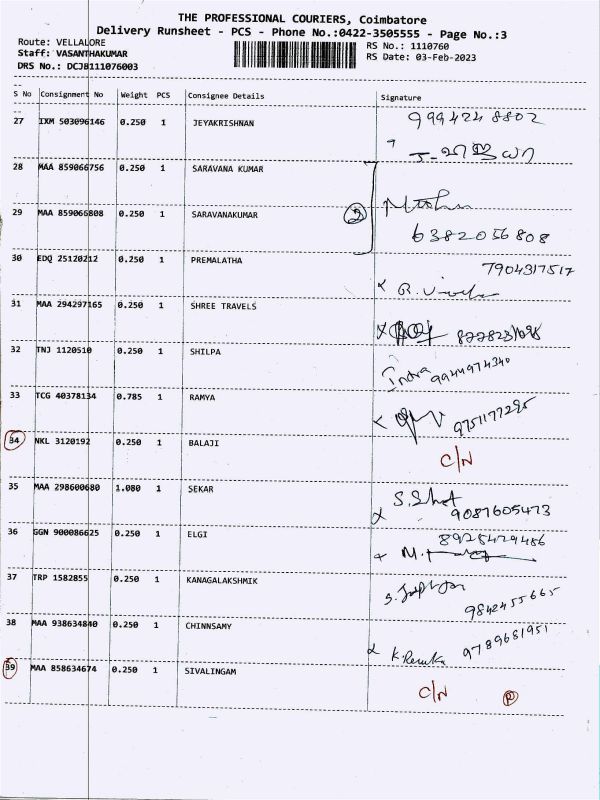 THE PROFESSIONAL COURIERS, Coimbatore
Delivery Runsheet - PCS - Phone No.:0422-3505555 - Page No.:3
Route: VELLALORE
RS No.: 1110760
Staff: VASANTHAKUMAR
RS Date: 03-Feb-2023
DRS No.: DCJB111076003
S No Consignment No Weight PCS Consignee Details Signature
27 IXM 503096146 0.250 1 JEYAKRISHNAN 9994248802
28 MAA 859066756 0.250 1 SARAVANA KUMAR
29 MAA 859066808 0.250 1 SARAVANAKUMAR 2
6382056808
30 EDQ 25120212 0.250 1 PREMALATHA 7904317517
31 MAA 294297165 0.250 1 SHREE TRAVELS
32 TNJ 1120510 0.250 1 SHILPA Indra 9944974340
33 TCG 40378134 0.785 1 RAMYA 9751177295
34 NKL 3120192 0.250 1 BALAJI C/N
35 MAA 298600680 1.080 1 SEKAR 9087605473
36 GGN 900086625 0.250 1 ELGI 8925429486
37 TRP 1582855 0.250 1 KANAGALAKSHMIK 9842455665
38 MAA 938634840 0.250 1 CHINNSAMY K. Renuka 9789681951
39 MAA 858634674 0.250 1 SIVALINGAM C/N P